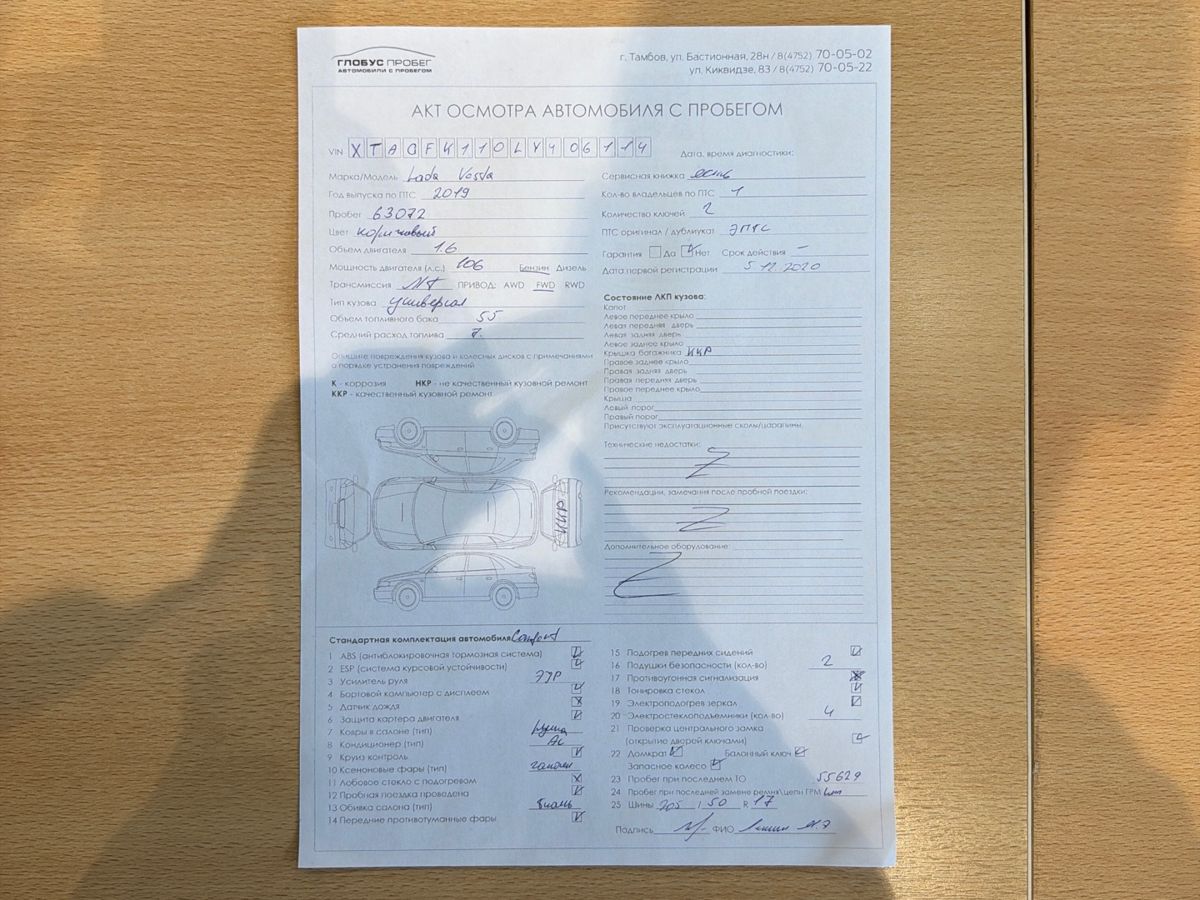 ГЛОБУС ПРОБЕГ
АВТОМОБИЛИ С ПРОБЕГОМ
г. Тамбов, ул. Бастионная, 28н / 8(4752) 70-05-02
ул. Киквидзе, 83 / 8(4752) 70-05-22
АКТ ОСМОТРА АВТОМОБИЛЯ С ПРОБЕГОМ
VIN XTAGFK110LY406114
Дата, время диагностики:
Марка/Модель Lada Vesta
Год выпуска по ПТС 2019
Пробег 63072
Цвет коричневый
Объем двигателя 1.6
Мощность двигателя (л.с.) 106 Бензин Дизель
Трансмиссия МТ ПРИВОД: AWD FWD RWD
Тип кузова универсал
Объем топливного бака 55
Средний расход топлива 7.
Сервисная книжка есть
Кол-во владельцев по ПТС 1
Количество ключей 2
ПТС оригинал / дубликат ЭПТС
Гарантия Да Нет Срок действия –
Дата первой регистрации 5.12.2020
Опишите повреждения кузова и колесных дисков с примечаниями
о порядке устранения повреждений
К - коррозия НКР - не качественный кузовной ремонт
ККР - качественный кузовной ремонт
ККР
Состояние ЛКП кузова:
Капот
Левое переднее крыло
Левая передняя дверь
Левая задняя дверь
Левое заднее крыло
Крышка багажника ККР
Правое заднее крыло
Правая задняя дверь
Правая передняя дверь
Правое переднее крыло
Крыша
Левый порог
Правый порог
Присутствуют эксплуатационные сколы/царапины.
Технические недостатки:
Z
Рекомендации, замечания после пробной поездки:
Z
Дополнительное оборудование:
Z
Стандартная комплектация автомобиля Comfort
1 ABS (антиблокировочная тормозная система)
2 ESP (система курсовой устойчивости)
3 Усилитель руля ЭУР
4 Бортовой компьютер с дисплеем
5 Датчик дождя
6 Защита картера двигателя
7 Ковры в салоне (тип)
8 Кондиционер (тип) AC
9 Круиз контроль
10 Ксеноновые фары (тип) галоген
11 Лобовое стекло с подогревом
12 Пробная поездка проведена
13 Обивка салона (тип) ткань
14 Передние противотуманные фары
15 Подогрев передних сидений
16 Подушки безопасности (кол-во) 2
17 Противоугонная сигнализация
18 Тонировка стекол
19 Электроподогрев зеркал
20 Электростеклоподъемники (кол во) 4
21 Проверка центрального замка
(открытие дверей ключами)
22 Домкрат Балонный ключ
Запасное колесо
23 Пробег при последнем ТО 55629
24 Пробег при последней замене ремня\цепи ГРМ
25 Шины 205 / 50 R 17
Подпись ФИО